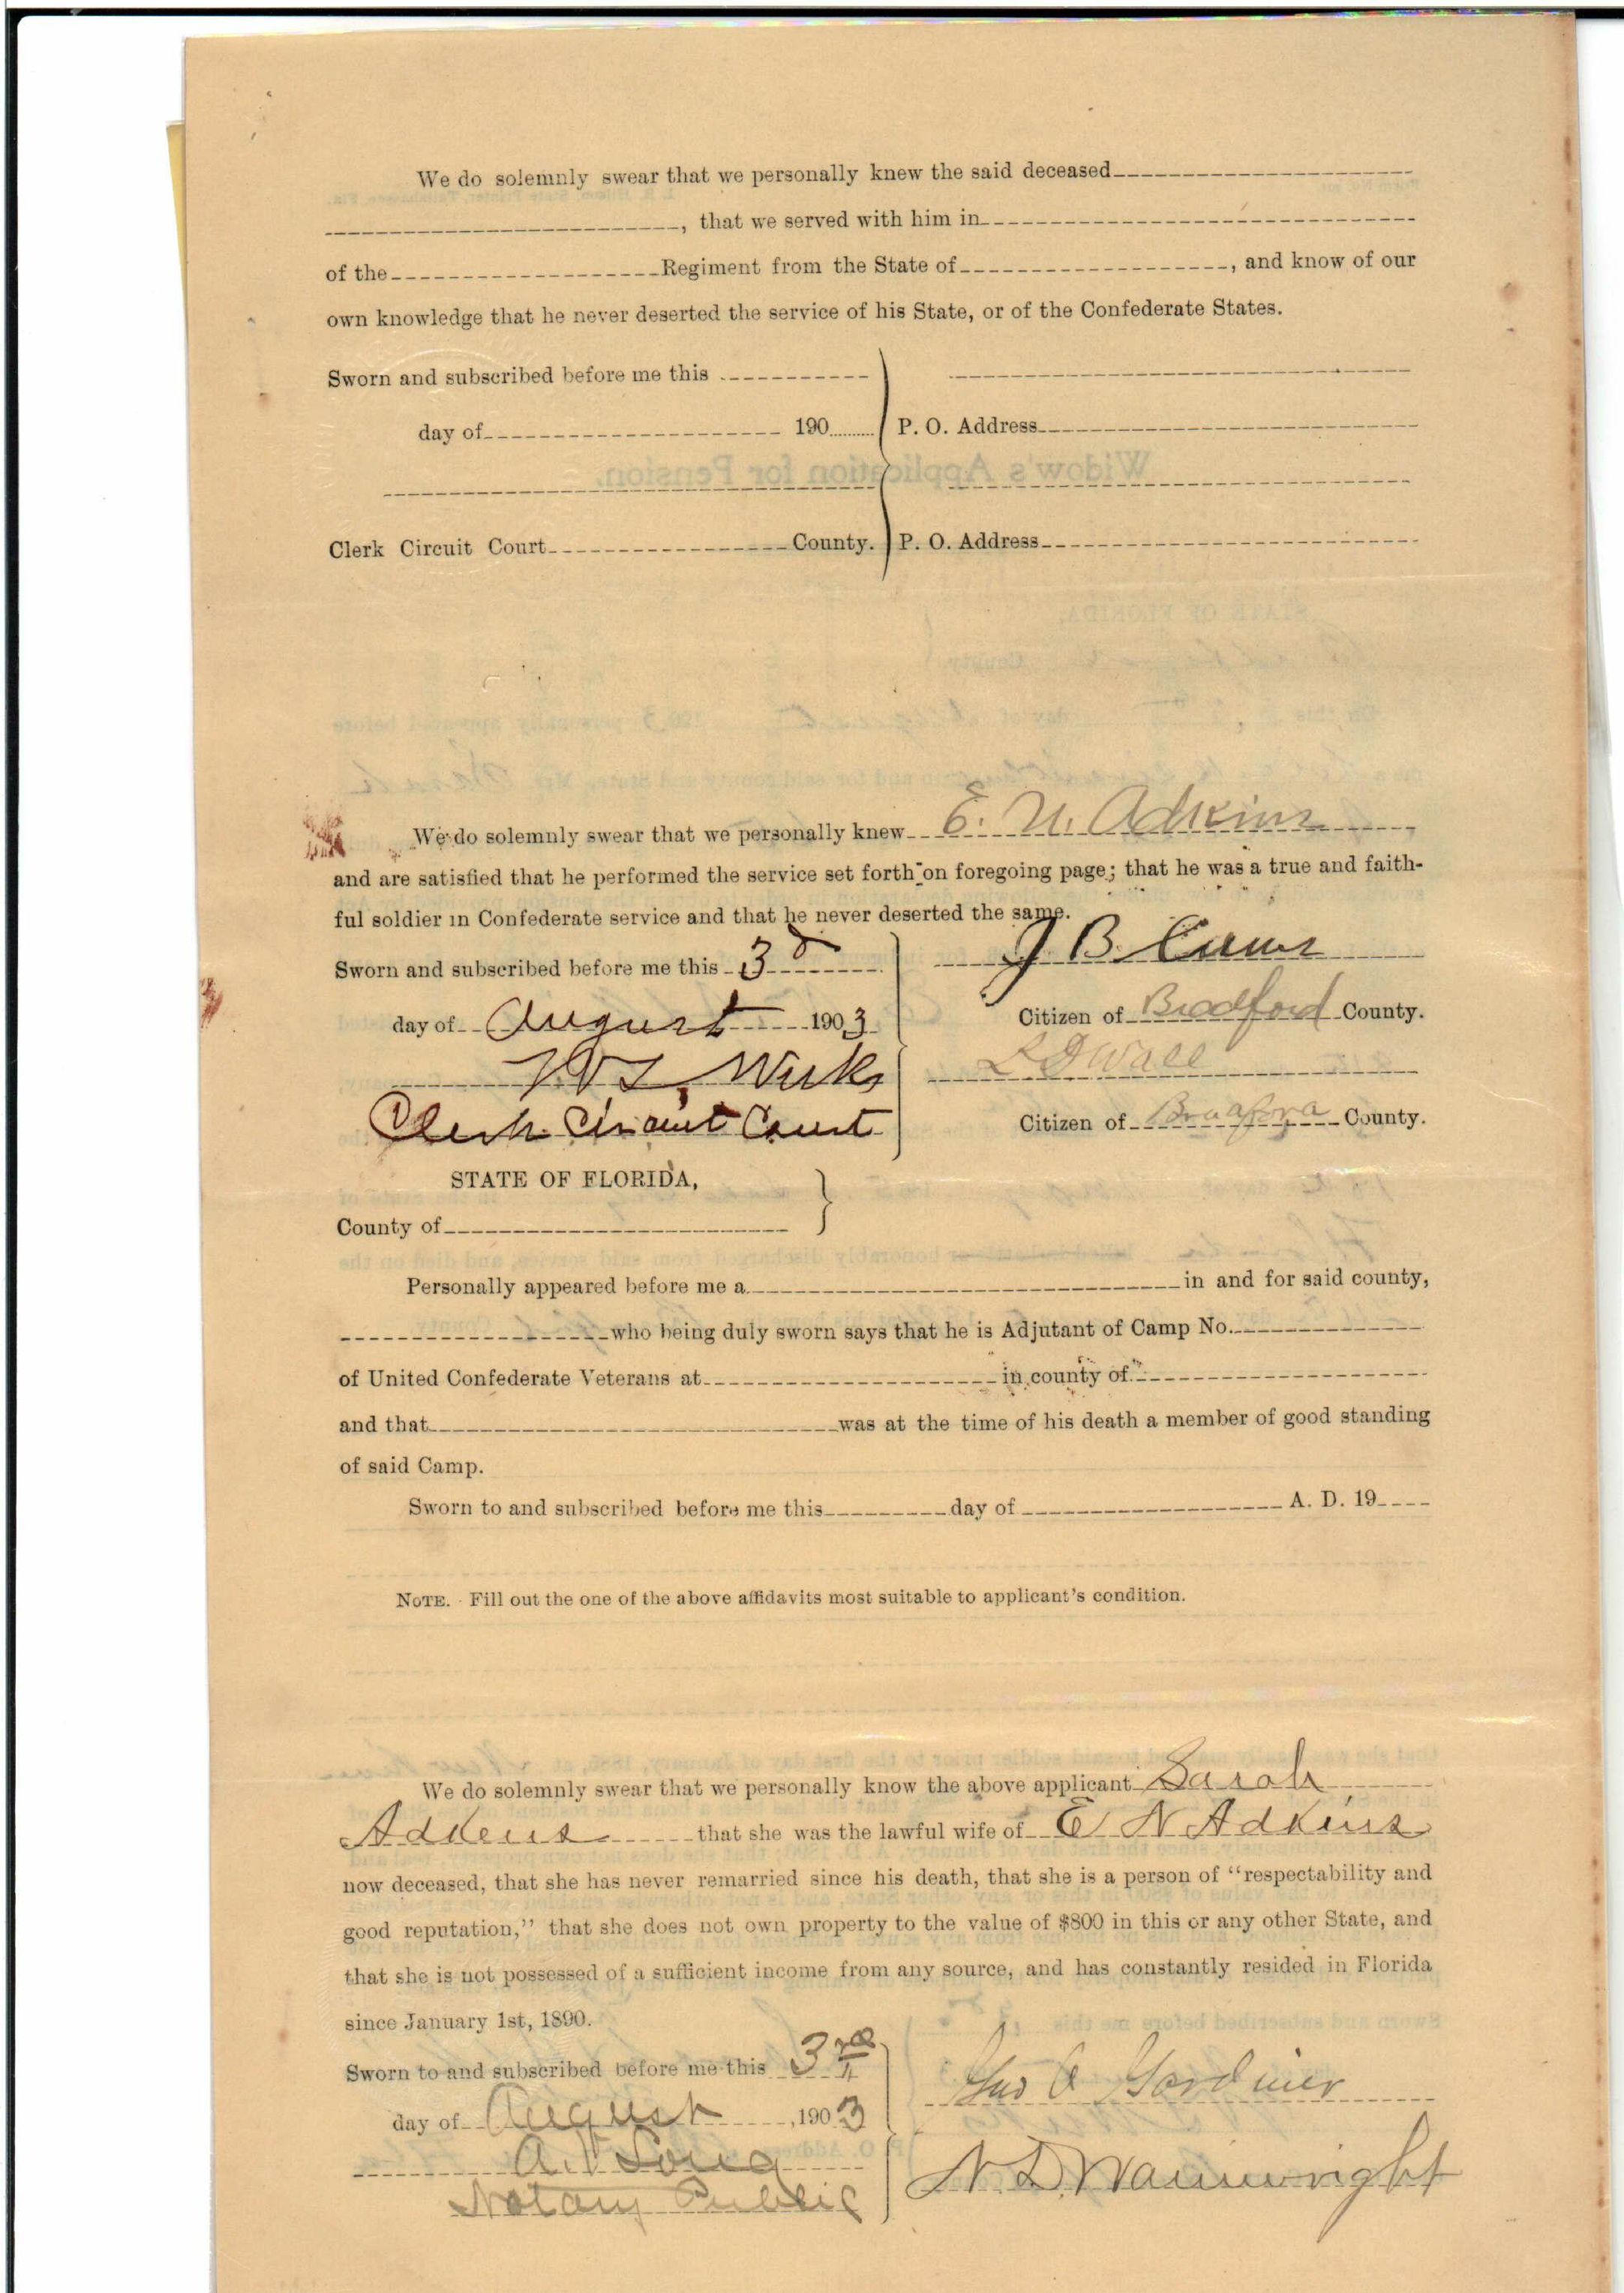 We do solemnly swear that we personally knew the said deceased
, that we served with him in
of the Regiment from the State of , and know of our
own knowledge that he never deserted the service of his State, or of the Confederate States.
Sworn and subscribed before me this
day of 190
P. O. Address
Clerk Circuit Court County.
P. O. Address
We do solemnly swear that we personally knew E. N. Adkins
and are satisfied that he performed the service set forth on foregoing page; that he was a true and faith-
ful soldier in Confederate service and that he never deserted the same.
Sworn and subscribed before me this 3d
day of August 1903
Clerk Circuit Court
J B
Citizen of Bradford County.
L D Wall
Citizen of Bradford County.
STATE OF FLORIDA,
County of
Personally appeared before me a in and for said county,
who being duly sworn says that he is Adjutant of Camp No.
of United Confederate Veterans at in county of
and that was at the time of his death a member of good standing
of said Camp.
Sworn to and subscribed before me this day of A. D. 19
NOTE. Fill out the one of the above affidavits most suitable to applicant's condition.
We do solemnly swear that we personally know the above applicant Sarah
Adkins that she was the lawful wife of E N Adkins
now deceased, that she has never remarried since his death, that she is a person of "respectability and
good reputation," that she does not own property to the value of $800 in this or any other State, and
that she is not possessed of a sufficient income from any source, and has constantly resided in Florida
since January 1st, 1890.
Sworn to and subscribed before me this 3rd
day of August, 1903
A. V. Long
Notary Public
Gardiner
N. D. Wainwright